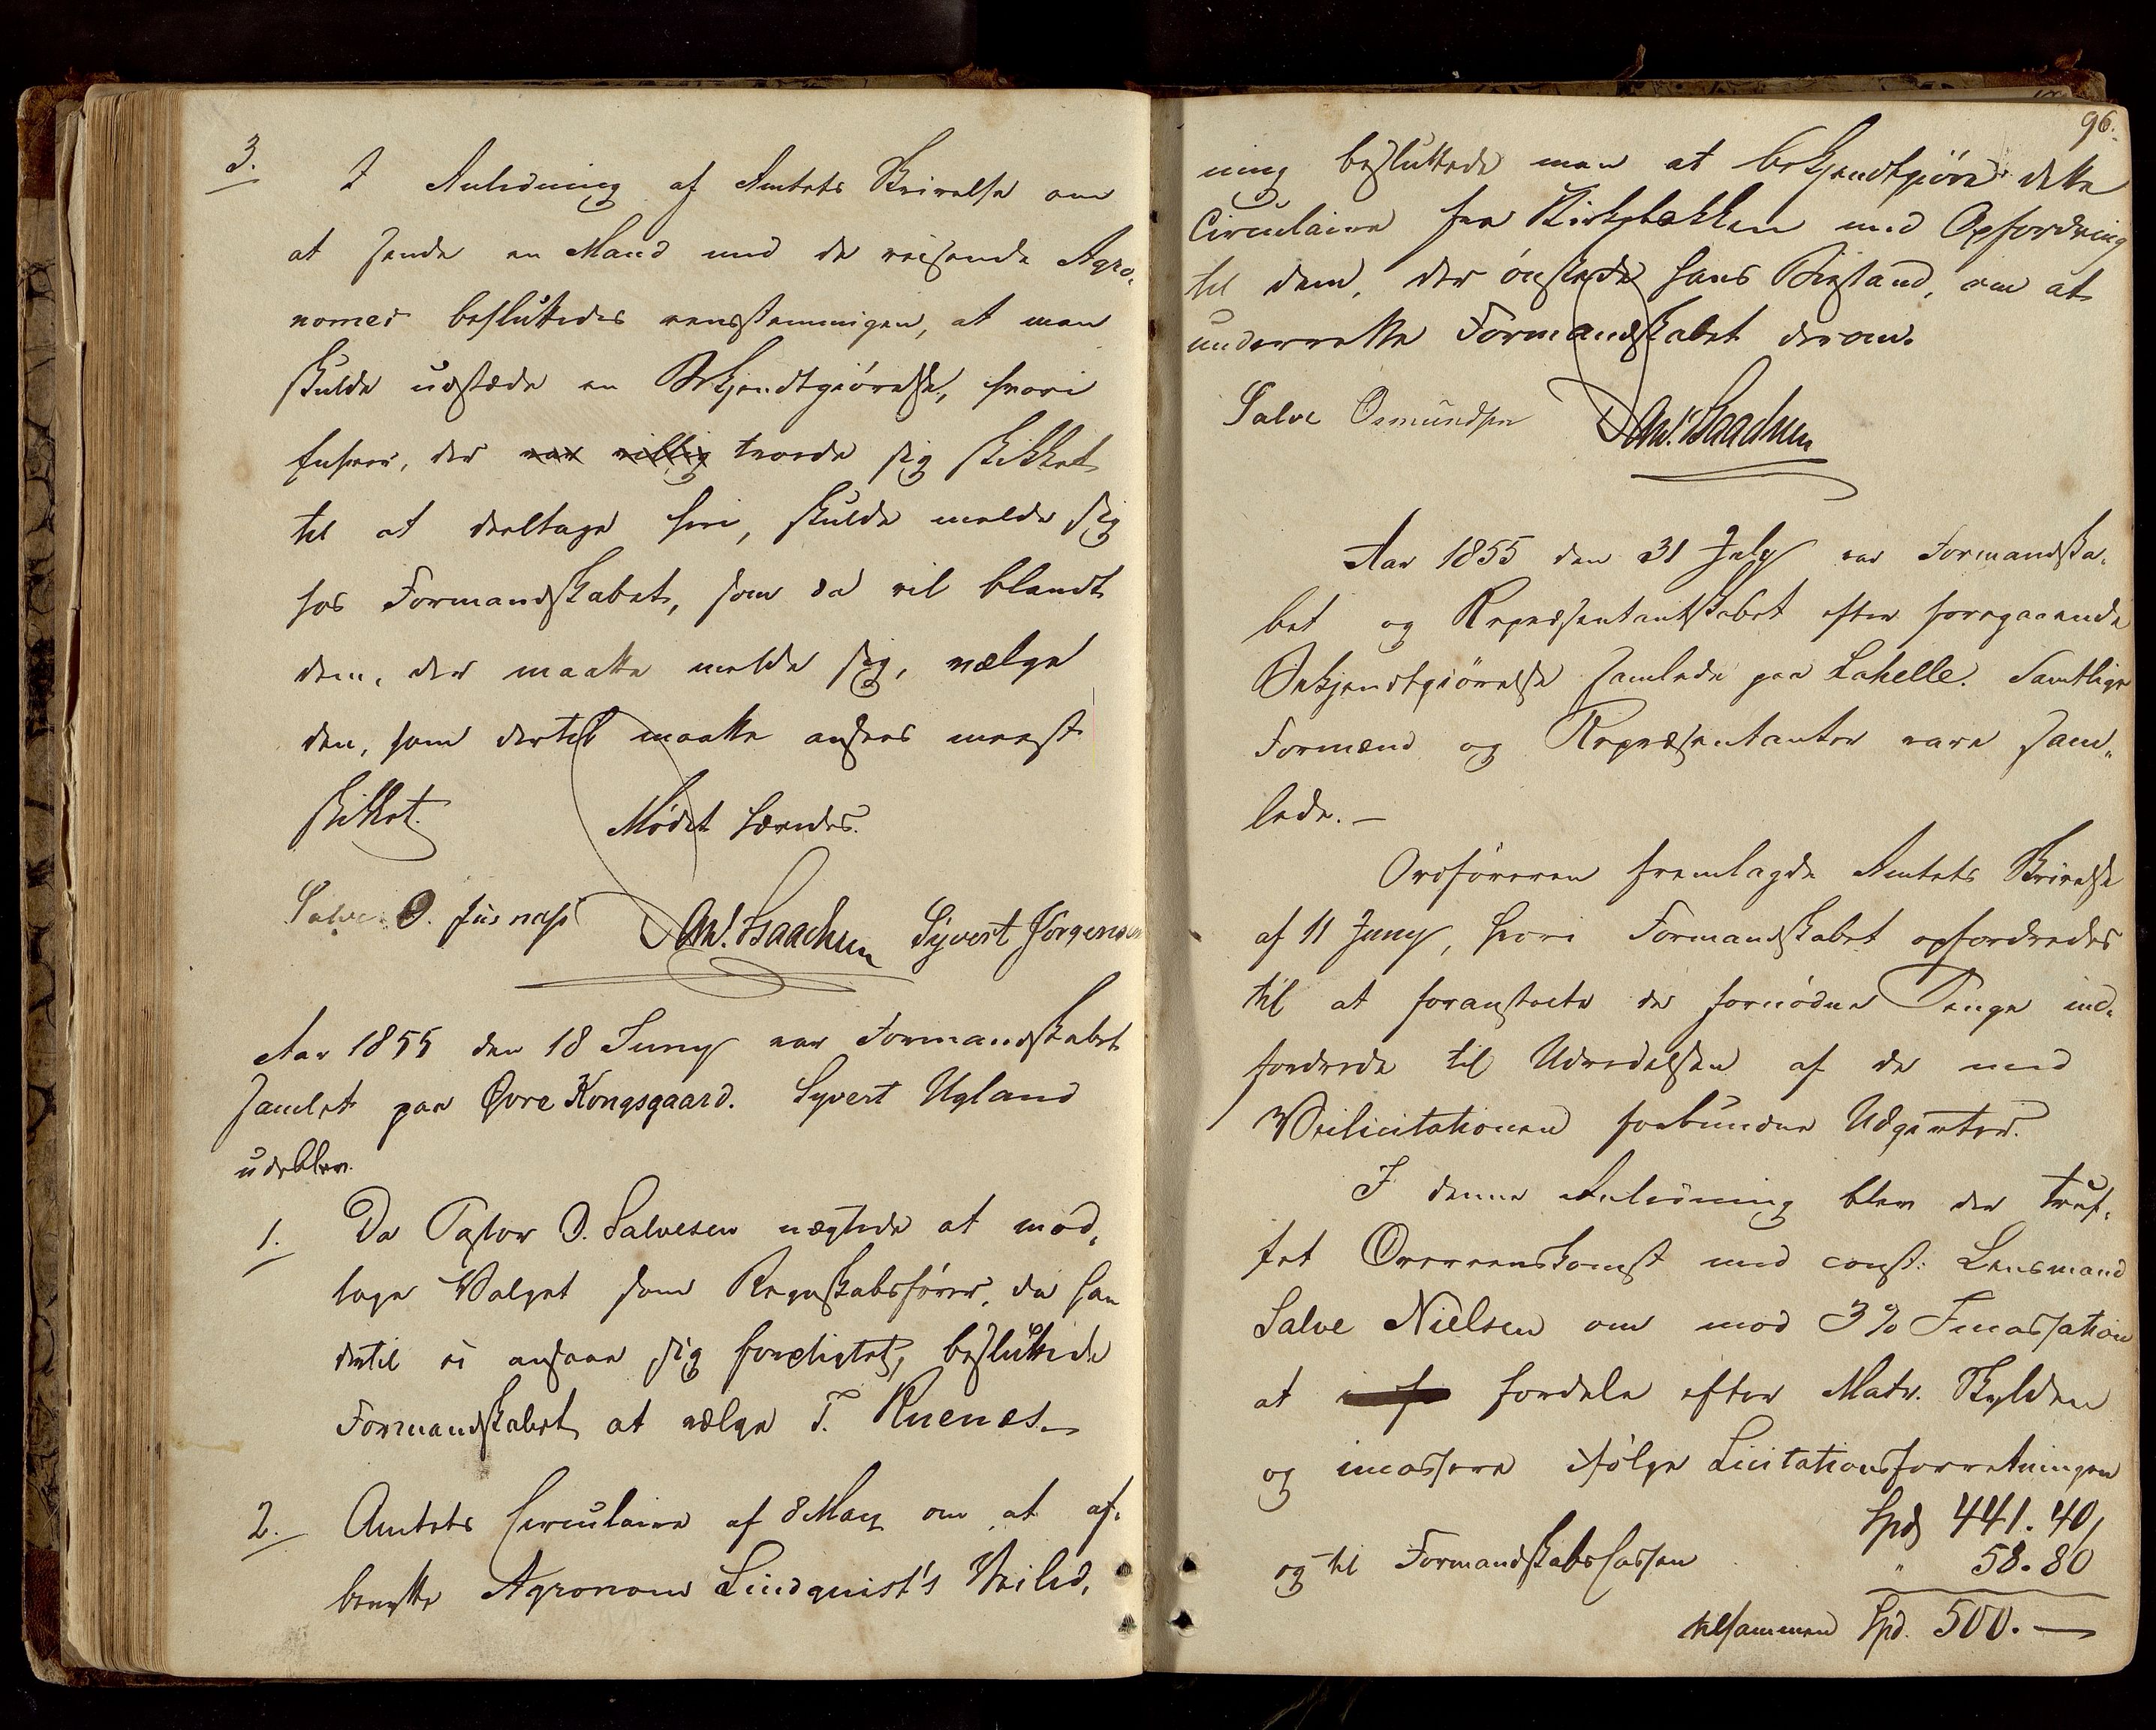 3. I Anledning af Amtets Skrivelse om
at sende en Mand med de reisende Agro-
nomer besluttedes eensstemmigen, at man
skulde udstæde en Bekjendtgiørelse, hvori
Enhver, der var villig troede sig skikket
til at deeltage heri, skulde melde sig
hos Formandskabet, som da vil blandt
dem, der maatte melde sig, vælge
den, som dertil maatte ansees meest
skikket. Mødet hævedes.
Salve O. Jusnæs Dan! Isaachsen Syvert Jörgensen
Aar 1855 den 18 Juny var Formandskabet
samlet paa Øvre Kongsgaard. Syvert Ugland
udeblev.
1. Da Pastor O. Salvesen nægtede at mod-
tage Valget som Regnskabsfører, da han
dertil ei ansaae sig forpligtet, besluttede
Formandskabet at vælge T. Kuenes.
2. Amtets Circulaire af 8 May om at af-
benytte Agronom Lindquist's Veiled-
96.
ning besluttede man at bekjendtgjöre dette
Circulaire fra Kirkebakken med Opfordring
til dem, der önskede hans Bistand, om at
underrette Formandskabet derom.
Salve Osmundsen Dan! Isaachsen
Aar 1855 den 31 July var Formandska-
bet og Repræsentantskabet efter foregaaende
Bekjendtgiörelse samlede paa Lahelle. Samtlige
Formænd og Repræsentanter vare sam-
lede. -
Ordföreren fremlagde Amtets Skrivelse
af 11 Juny, hvori Formandskabet opfordredes
til at foranstalte de fornödne Penge ind-
fordrede til Udredelsen af de med
Veilicitationen forbundne Udgivter.
I denne Anledning blev der truf-
fet Overeenskomst med const: Lensmand
Salve Nielsen om mod 3% Incassation
at fordele efter Matr. Skylden
og incassere ifölge Licitationsforretningen
Spd 441. 40,
og til Formandskabscassen " 58. 80
tilsammen Spd. 500. —